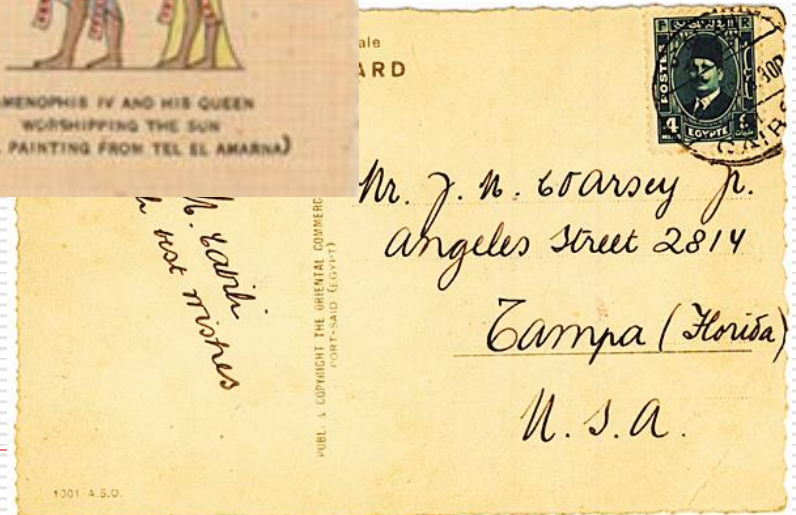 AMENOPHIS IV AND HIS QUEEN
WORSHIPPING THE SUN
PAINTING FROM TEL EL AMARNA)
ale
ARD
POSTES
4
EGYPTE
CAIR
Mr. J. N. Jr.
Angeles Street 2814
Tampa (Florida)
U.S.A.
best wishes
PUBL. & COPYRIGHT THE ORIENTAL COMMERC
PORT-SAID (EGYPT)
1001 A.S.O.